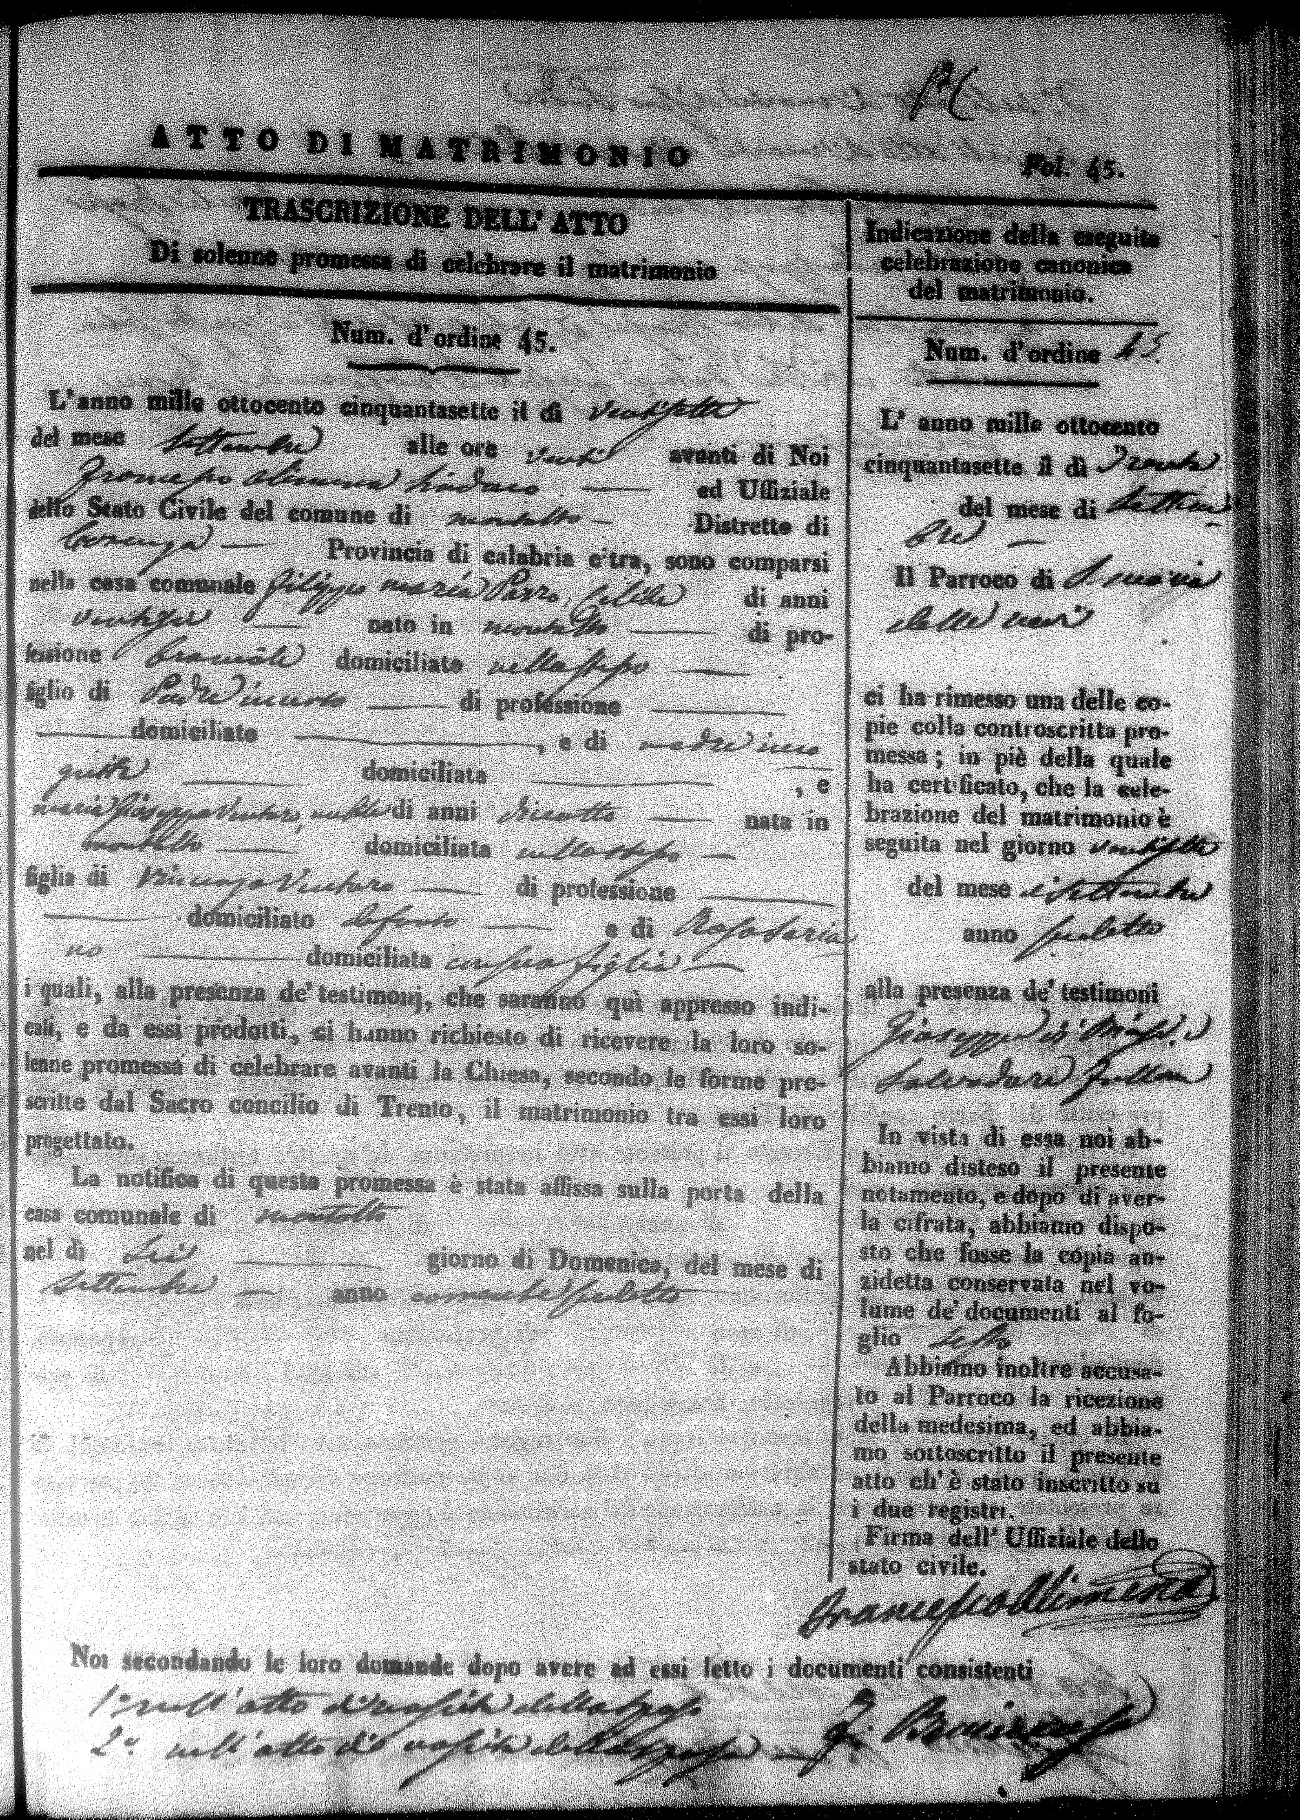 ATTO DI MATRIMONIO
Fol. 45.
TRASCRIZIONE DELL' ATTO
Di solenne promessa di celebrare il matrimonio
Num. d'ordine 45.
L'anno mille ottocento cinquantasette il dì ventisette
del mese Settembre alle ore venti avanti di Noi
Francesco Alimena Sindaco ed Uffiziale
dello Stato Civile del comune di Montalto Distretto di
Cosenza Provincia di calabria citra, sono comparsi
nella casa comunale Filippo Maria celibe di anni
ventisei nato in Montalto di pro-
fessione bracciale domiciliato nello stesso
figlio di Padre incerto di professione
domiciliato , e di madre
domiciliata , e
Maria Giuseppa Ventura, nubile di anni diciotto nata in
Montalto domiciliata nello stesso
figlia di Vincenzo Ventura di professione
domiciliato defunto e di Rosa
domiciliata con sua figlia
i quali, alla presenza de' testimonj, che saranno quì appresso indi-
cati, e da essi prodotti, ci hanno richiesto di ricevere la loro so-
lenne promessa di celebrare avanti la Chiesa, secondo le forme pre-
scritte dal Sacro concilio di Trento, il matrimonio tra essi loro
progettato.
La notifica di questa promessa è stata affissa sulla porta della
casa comunale di Montalto
nel dì Sei giorno di Domenica, del mese di
Settembre anno corrente suddetto
Noi secondando le loro domande dopo avere ad essi letto i documenti consistenti
1° nell'atto di nascita dello sposo
2° nell'atto di nascita della sposa
Indicazione della eseguita
celebrazione canonica
del matrimonio.
Num. d'ordine 45.
L' anno mille ottocento
cinquantasette il dì Trenta
del mese di Settem-
bre
Il Parroco di S. Maria
della
ci ha rimesso una delle co-
pie colla controscritta pro-
messa; in piè della quale
ha certificato, che la cele-
brazione del matrimonio è
seguita nel giorno ventisette
del mese di Settembre
anno suddetto
alla presenza de' testimoni
Giuseppe di
Salvadore
In vista di essa noi ab-
biamo disteso il presente
notamento, e dopo di aver-
la cifrata, abbiamo dispo-
sto che fosse la copia an-
zidetta conservata nel vo-
lume de' documenti al fo-
glio
Abbiamo inoltre accusa-
to al Parroco la ricezione
della medesima, ed abbia-
mo sottoscritto il presente
atto ch' è stato inscritto su
i due registri.
Firma dell' Uffiziale dello
stato civile.
Francesco Alimena